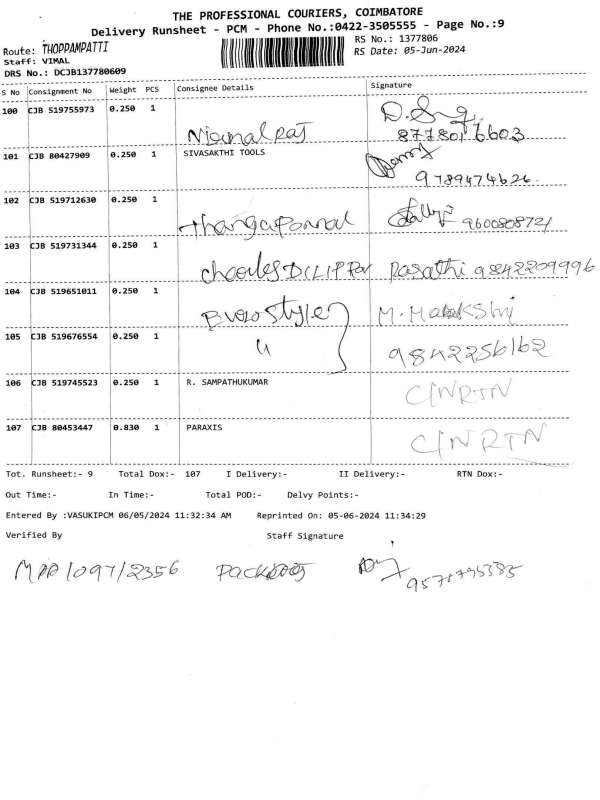 THE PROFESSIONAL COURIERS, COIMBATORE
Delivery Runsheet - PCM - Phone No.:0422-3505555 - Page No.:9
Route: THOPPAMPATTI
RS No.: 1377806
Staff: VIMAL
RS Date: 05-Jun-2024
DRS No.: DCJB137780609
S No Consignment No Weight PCS Consignee Details Signature
100 CJB 519755973 0.250 1
Nirmal raj 8778016603
101 CJB 80427909 0.250 1 SIVASAKTHI TOOLS
9789474626
102 CJB 519712630 0.250 1
Thangaponnal 9600808721
103 CJB 519731344 0.250 1
Parasathi 9842209996
104 CJB 519651011 0.250 1
Euro Style M.
105 CJB 519676554 0.250 1
9842256162
106 CJB 519745523 0.250 1 R. SAMPATHUKUMAR C/N RTN
107 CJB 80453447 0.830 1 PARAXIS C/N RTN
Tot. Runsheet:- 9 Total Dox:- 107 I Delivery:- II Delivery:- RTN Dox:-
Out Time:- In Time:- Total POD:- Delvy Points:-
Entered By :VASUKIPCM 06/05/2024 11:32:34 AM Reprinted On: 05-06-2024 11:34:29
Verified By Staff Signature
/097/2356